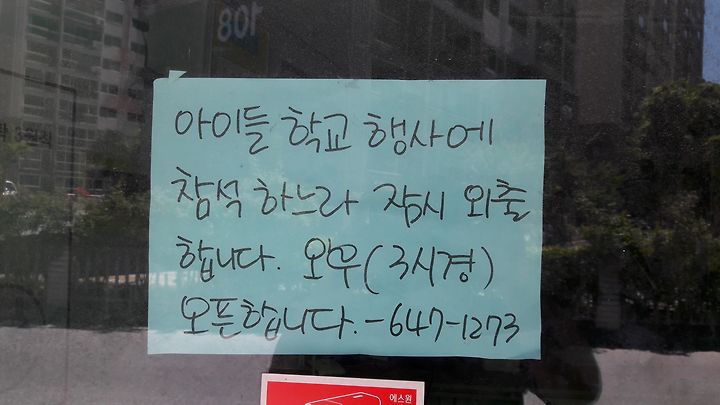 아이들 학교 행사에
참석 하느라 잠시 외출
합니다. 오우(3시경)
오픈합니다.-647-1273
에스원
108